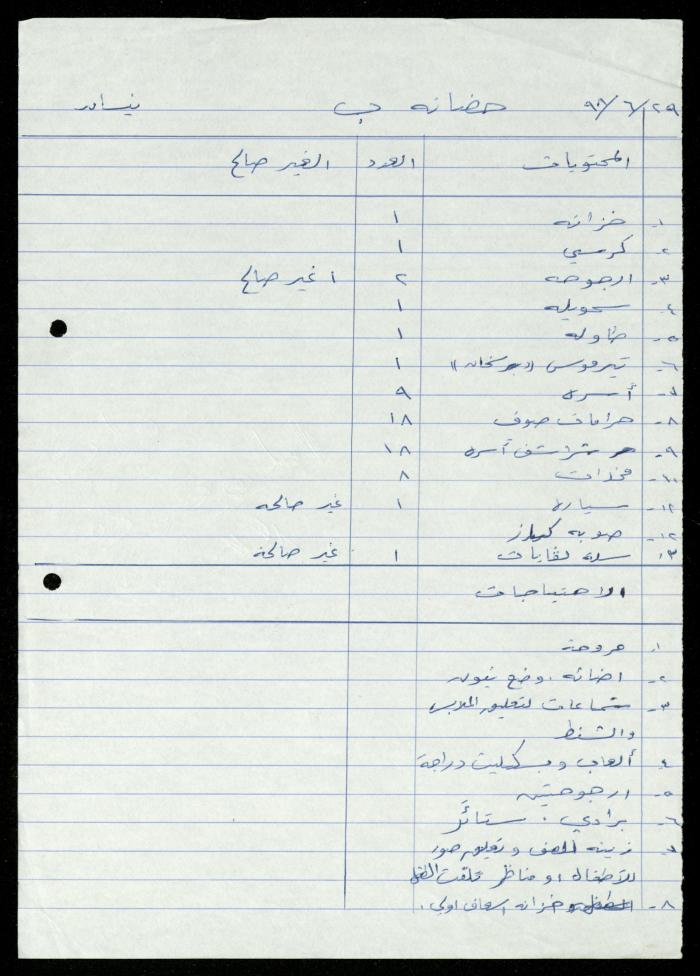 ٩٨/٦/٢٩ حضانه ب نيسان
المحتويات العدد الغير صالح
١- خزانه ١
٢- كرسي ١
٣- ارجوحه ٢ ١ غير صالح
٤- سحويله ١
٥- طاوله ١
٦- تيرموس ١
٧- أسره ٩
٨- حرامات صوف ١٨
٩- شراشف أسره ١٨
١٠- مخدات ٨
١٢- سياره ١ غير صالحه
١٢- صوبه
١٣- سله نفايات ١ غير صالحة
الاحتياجات
١- مروحة
٢- اضائه، وضع نيون
٣- شماعات لتعليق الملابس
والشنط
٤- ألعاب وبسكليت دراجة
٥- ارجوحتين
٦- برادي، ستائر
٧- زينه للصف وتعليق صور
للأطفال او مناظر
٨- خزانه اسعاف اولي.